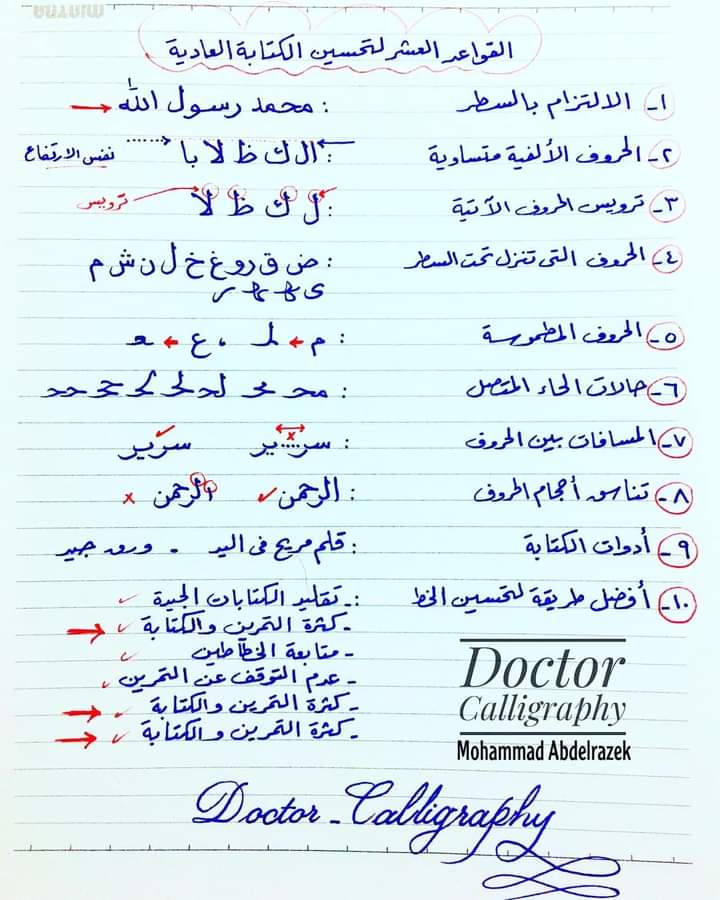 القواعد العشر لتحسين الكتابة العادية
١- الالتزام بالسطر : محمد رسول الله
٢- الحروف الألفية متساوية : ال ك ظ لا با نفس الارتفاع
٣- ترويس الحروف الآتية : ل ك ظ لا ترويس
٤- الحروف التى تنزل تحت السطر : ض ق ر و غ خ ل ن ش م
٥- الحروف المطموسة :
٦- حالات الحاء المتصل :
٧- المسافات بين الحروف : سرير سرير
٨- تناسق أحجام الحروف : الرحمن الرحمن
٩- أدوات الكتابة : قلم مريح فى اليد - ورق جيد
١٠- أفضل طريقة لتحسين الخط :- تقليد الكتابات الجيدة
- كثرة التمرين والكتابة
- متابعة الخطاطين
- عدم التوقف عن التمرين
- كثرة التمرين والكتابة
- كثرة التمرين والكتابة
Doctor
Calligraphy
Mohammad Abdelrazek
Doctor - Calligraphy